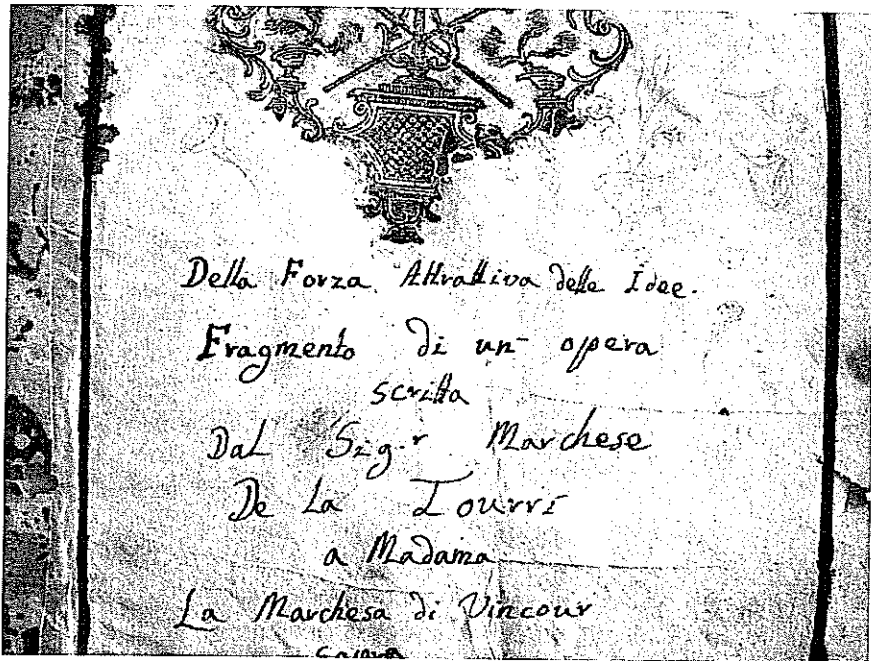 Della Forza Attrattiva delle Idee.
Fragmento di un- opera
scritta
Dal Sig.r Marchese
De La Tourrì
a Madama
La Marchesa di Vincour